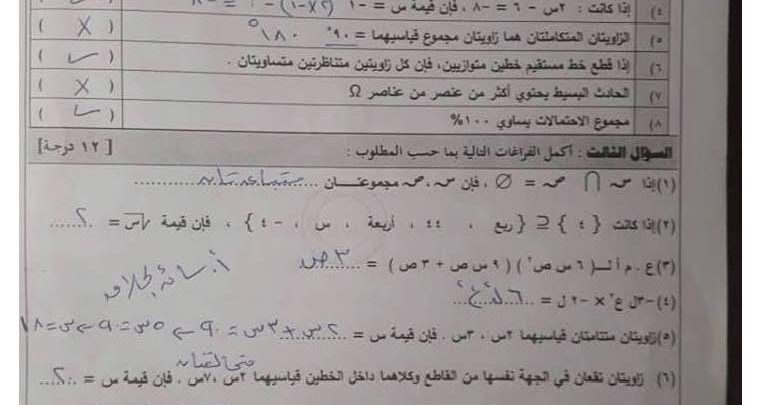 ٤) إذا كانت : ٢س - ٦ = -٨ ، فإن قيمة س = -١ (٢×-١)-٦ = -٨ ( ✓ )
٥) الزاويتان المتكاملتان هما زاويتان مجموع قياسيهما = ٩٠° ١٨٠° ( X )
٦) إذا قطع خط مستقيم خطين متوازيين، فإن كل زاويتين متناظرتين متساويتان . ( ✓ )
٧) الحادث البسيط يحتوي أكثر من عنصر من عناصر Ω ( X )
٨) مجموع الاحتمالات يساوي ١٠٠% ( ✓ )
السؤال الثالث : أكمل الفراغات التالية بما حسب المطلوب : [ ١٢ درجة]
(١) إذا س ∩ ص = ∅ ، فإن س ، ص مجموعتــان ...متباعدتان...
(٢) إذا كانت { ٤ } ⊆ { ربع ، ٤٤ ، أربعة ، س ، -٤ } ، فإن قيمة √س = ...٢...
(٣) ع . م . أ لـ ( ٦ س ص٢ ) ( ٩ س ص + ٣ ص ) = ...٣ ص...
(٤) -٣ل ع٢ × -٢ ل = ...٦ ل٢ ع٢...
(٥) زاويتان متتامتان قياسيهما ٢س ، ٣س . فإن قيمة س = ٢س + ٣س = ٩٠ ← ٥س = ٩٠ ← س = ١٨
متحالفتان
(٦) زاويتان تقعان في الجهة نفسها من القاطع وكلاهما داخل الخطين قياسيهما ٢س ،٧س . فإن قيمة س = ...٢٠...